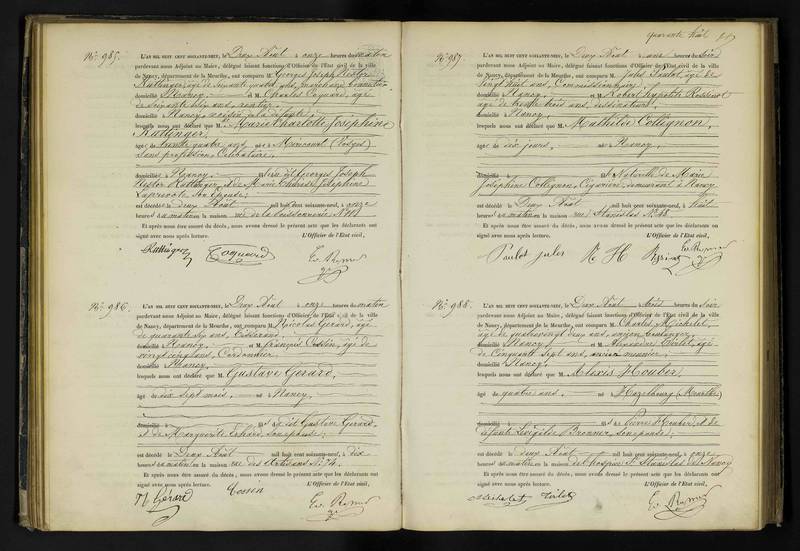 quarante huit
N° 985.
L'AN MIL HUIT CENT SOIXANTE-NEUF, le Deux Août à onze heures du matin
pardevant nous Adjoint au Maire, délégué faisant fonctions d'Officier de l'Etat civil de la ville
de Nancy, département de la Meurthe, ont comparu M. Georges Joseph Nestor
Kuttinger âgé de soixante quatre ans,
domicilié à Nancy, et M. Charles Coquard, âgé
de soixante six ans, rentier,
domicilié à Nancy, voisin de la défunte;
lesquels nous ont déclaré que M. Marie Charlotte Joséphine
Kuttinger,
âgée de trente quatre ans née à Mirecourt (Vosges)
sans profession, Célibataire,
domiciliée à Nancy, fille de Georges Joseph
Nestor Kuttinger, et de Marie Thérèse Joséphine
est décédée le deux Août mil huit cent soixante-neuf, à onze
heures du matin en la maison rue de la Poissonnerie N°
Et après nous être assuré du décès, nous avons dressé le présent acte que les déclarants ont
signé avec nous après lecture. L'Officier de l'Etat civil,
Kuttinger Coquard
N° 986.
L'AN MIL HUIT CENT SOIXANTE-NEUF, le Deux Août à onze heures du matin
pardevant nous Adjoint au Maire, délégué faisant fonctions d'Officier de l'Etat civil de la ville
de Nancy, département de la Meurthe, ont comparu M. Nicolas Gérard, âgé
de quarante six ans,
domicilié à Nancy, et M. François Cossin, âgé de
vingt cinq ans, Cordonnier,
domicilié à Nancy,
lesquels nous ont déclaré que M. Gustave Gérard,
âgé de dix sept mois, né à Nancy,
domicilié à fils de Gustave Gérard,
et de Marguerite son épouse;
est décédé le Deux Août mil huit cent soixante-neuf, à dix
heures du matin en la maison rue des Artisans N° 74.
Et après nous être assuré du décès, nous avons dressé le présent acte que les déclarants ont
signé avec nous après lecture. L'Officier de l'Etat civil,
N Gérard Cossin
N° 987
L'AN MIL HUIT CENT SOIXANTE-NEUF, le Deux Août à une heures du soir
pardevant nous Adjoint au Maire, délégué faisant fonctions d'Officier de l'Etat civil de la ville
de Nancy, département de la Meurthe, ont comparu M. Jules Paulot, âgé de
vingt huit ans, Commissionnaire,
domicilié à Nancy, et M. Robert Hyppolite
âgé de trente trois ans, dessinateur,
domicilié à Nancy,
lesquels nous ont déclaré que M. Mathilde Collignon,
âgée de dix jours, née à Nancy,
fille Naturelle de Marie
Joséphine Collignon, Cigarière, demeurant à Nancy
est décédée le Deux Août mil huit cent soixante-neuf, à huit
heures du matin en la maison rue St Stanislas N° 48
Et après nous être assuré du décès, nous avons dressé le présent acte que les déclarants ont
signé avec nous après lecture. L'Officier de l'Etat civil,
Paulot jules
N° 988.
L'AN MIL HUIT CENT SOIXANTE-NEUF, le Deux Août à trois heures du soir
pardevant nous Adjoint au Maire, délégué faisant fonctions d'Officier de l'Etat civil de la ville
de Nancy, département de la Meurthe, ont comparu M. Charles Michelet,
âgé de quatrevingt deux ans, ancien boulanger,
domicilié à Nancy, et M. Alexandre âgé
de Cinquante sept ans, ancien meunier,
domicilié à Nancy,
lesquels nous ont déclaré que M. Alexis Houber,
âgé de quatre ans, né à Hazelbourg (Meurthe)
domicilié à fils de Pierre Houber, et de
défunte Bronner, son épouse;
est décédé le deux Août mil huit cent soixante-neuf, à onze
heures du matin en la maison des hospices St Stanislas de Nancy
Et après nous être assuré du décès, nous avons dressé le présent acte que les déclarants ont
signé avec nous après lecture. L'Officier de l'Etat civil,
Michelet